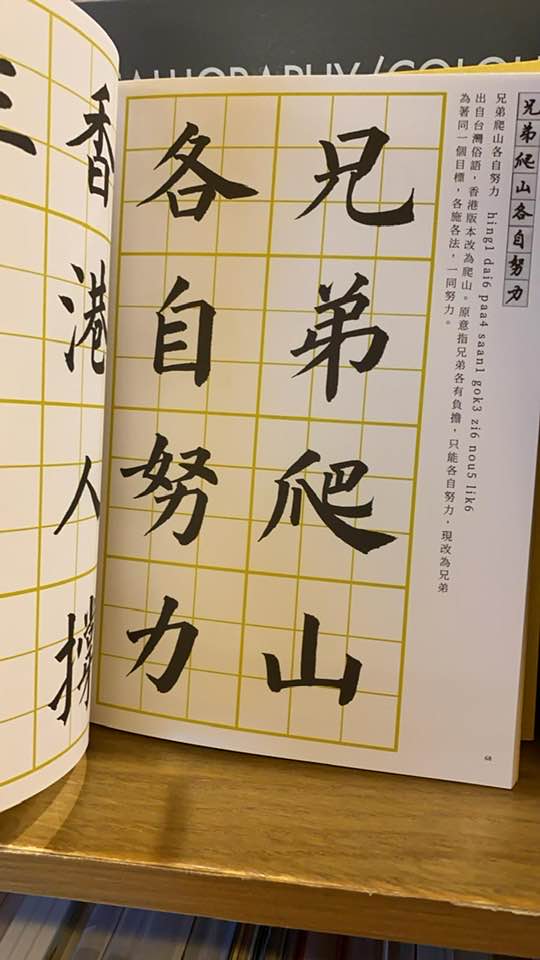 CALLIGRAPHY/COLOU
兄弟爬山各自努力
兄弟爬山各自努力 hing1 dai6 paa4 saan1 gok3 zi6 nou5 lik6
出自台灣俗語，香港版本改為爬山。原意指兄弟各有負擔，只能各自努力，現改為兄弟
為著同一個目標，各施各法，一同努力。
兄弟爬山
各自努力
68
香港人撐